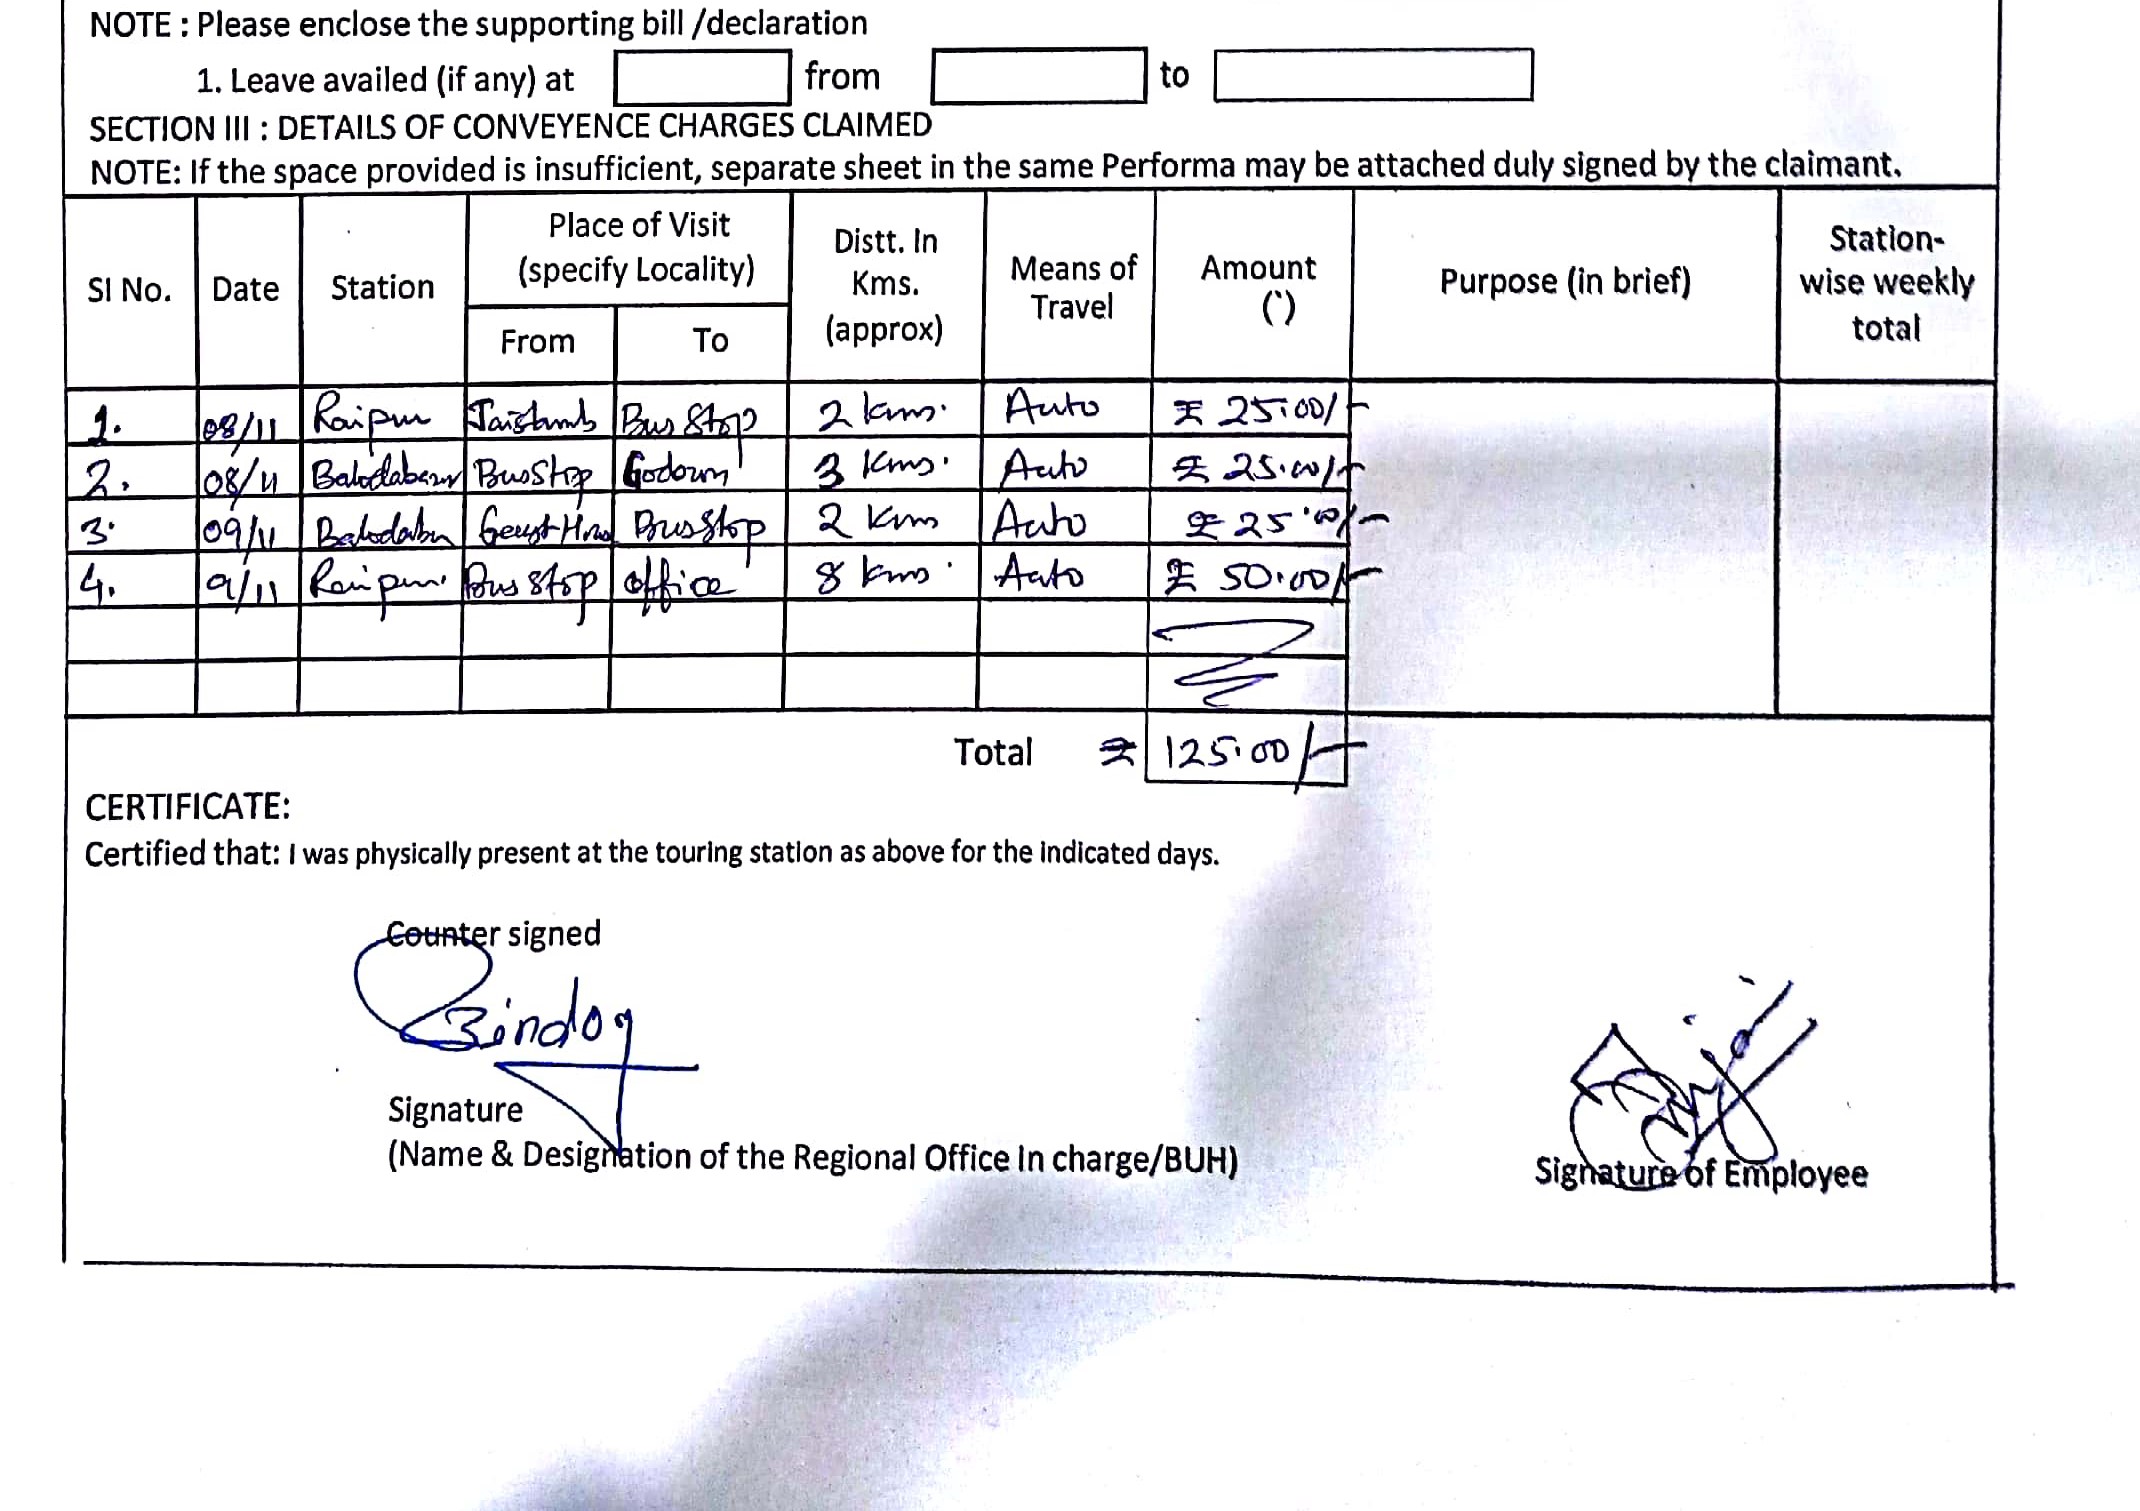 NOTE : Please enclose the supporting bill /declaration
1. Leave availed (if any) at from to
SECTION III : DETAILS OF CONVEYENCE CHARGES CLAIMED
NOTE: If the space provided is insufficient, separate sheet in the same Performa may be attached duly signed by the claimant.
Sl No. Date Station Place of Visit (specify Locality) From To Distt. In Kms. (approx) Means of Travel Amount (`) Purpose (in brief) Station-wise weekly total
1. 08/11 Raipur Bus Stop 2 kms. Auto ₹ 25.00/-
2. 08/11 Bus Stop Godown 3 Kms. Auto ₹ 25.00/-
3. 09/11 Bus Stop 2 Km Auto ₹ 25.00/-
4. 9/11 Raipur Bus Stop office 8 kms. Auto ₹ 50.00/-
Total ₹ 125.00/-
CERTIFICATE:
Certified that: I was physically present at the touring station as above for the indicated days.
Counter signed
Signature
(Name & Designation of the Regional Office In charge/BUH)
Signature of Employee